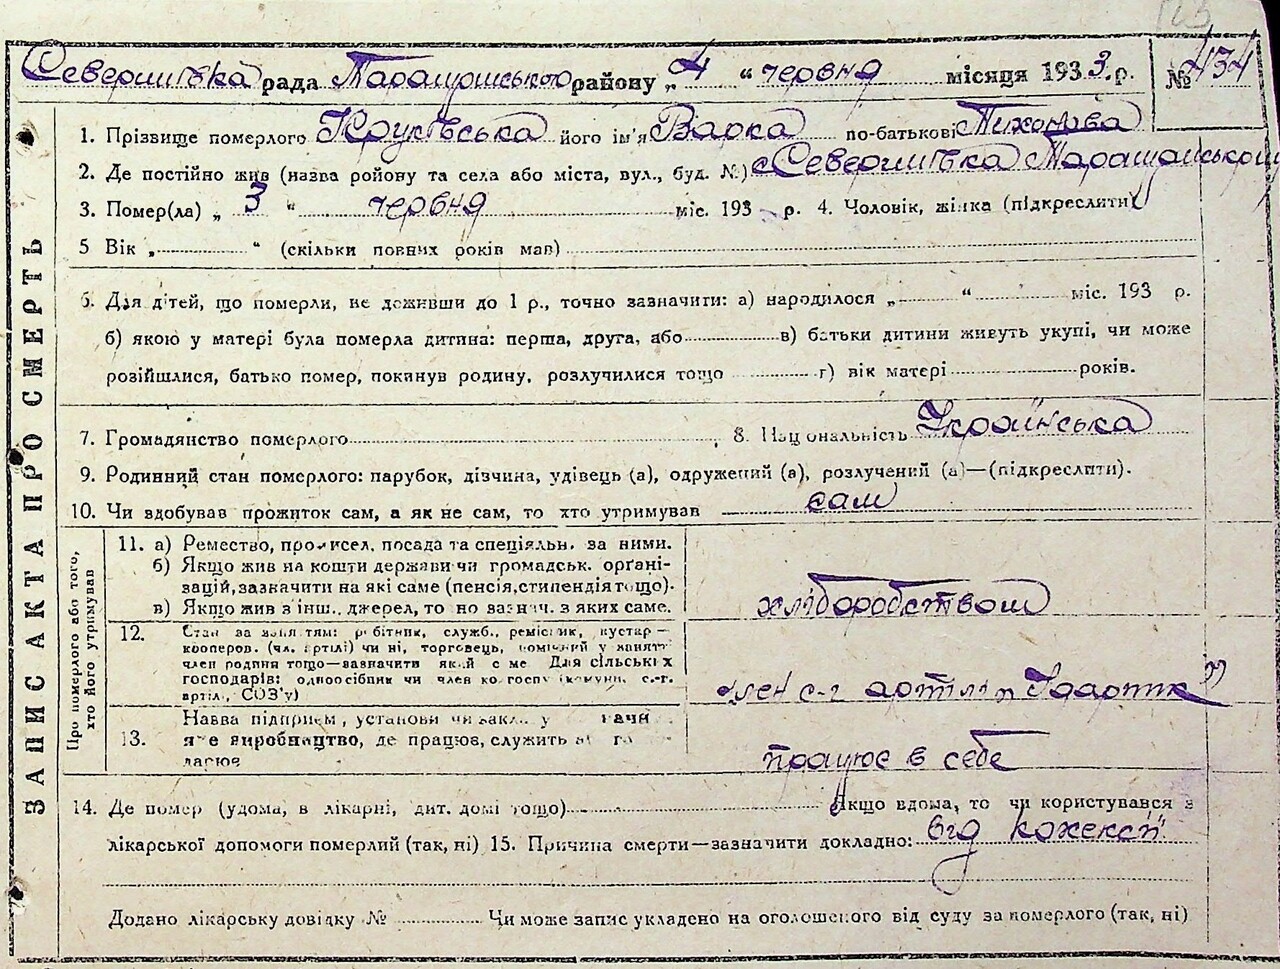 Северинівка рада Таращанського району „ 4 “ червня місяця 1933 р. № 434
1. Прізвище померлого Круківська його ім'я Варка по-батькові Тихонова
2. Де постійно жив (назва ройону та села або міста, вул., буд. №) с Северинівка Таращанському
3. Помер(ла) „ 3 “ червня міс. 193 р. 4. Чоловік, жінка (підкреслити)
5 Вік „ “ (скільки повних років мав)
6. Для дітей, що померли, не доживши до 1 р., точно зазначити: а) народилося „ “ міс. 193 р.
б) якою у матері була померла дитина: перша, друга, або в) батьки дитини живуть укупі, чи може
розійшлися, батько помер, покинув родину, розлучилися тощо г) вік матері років.
7. Громадянство померлого 8. Національність Українська
9. Родинний стан померлого: парубок, дівчина, удівець (а), одружений (а), розлучений (а)—(підкреслити).
10. Чи здобував прожиток сам, а як не сам, то хто утримував сам
ЗАПИС АКТА ПРО СМЕРТЬ
Про померлого або того, хто його утримував
11. а) Ремество, промисел, посада та спеціяльн. за ними.
б) Якщо жив на кошти держави чи громадськ. орґані-
зацій, зазначити на які саме (пенсія, стипендія тощо).
в) Якщо жив з інш. джерел, то но зазнач. з яких саме.
хліборобством
12. Стан за заняттям: робітник, служб., ремісник, кустар—
кооперов. (чл. артілі) чи ні, торговець, помічний у занятт
член родини тощо—зазначити який с ме Для сільських
господарів: одноосібник чи член колгоспу (комуни, с.-г.
артіл., СОЗ'у)
член с-г артілі „
13. Назва підприєм, установи чи закл. у
яке виробництво, де працює, служить
працює в себе
14. Де помер (удома, в лікарні, дит. домі тощо) Якщо вдома, то чи користувався з
лікарської допомоги померлий (так, ні) 15. Причина смерти—зазначити докладно: від кохексії
Додано лікарську довідку № Чи може запис укладено на оголошеного від суду за померлого (так, ні)